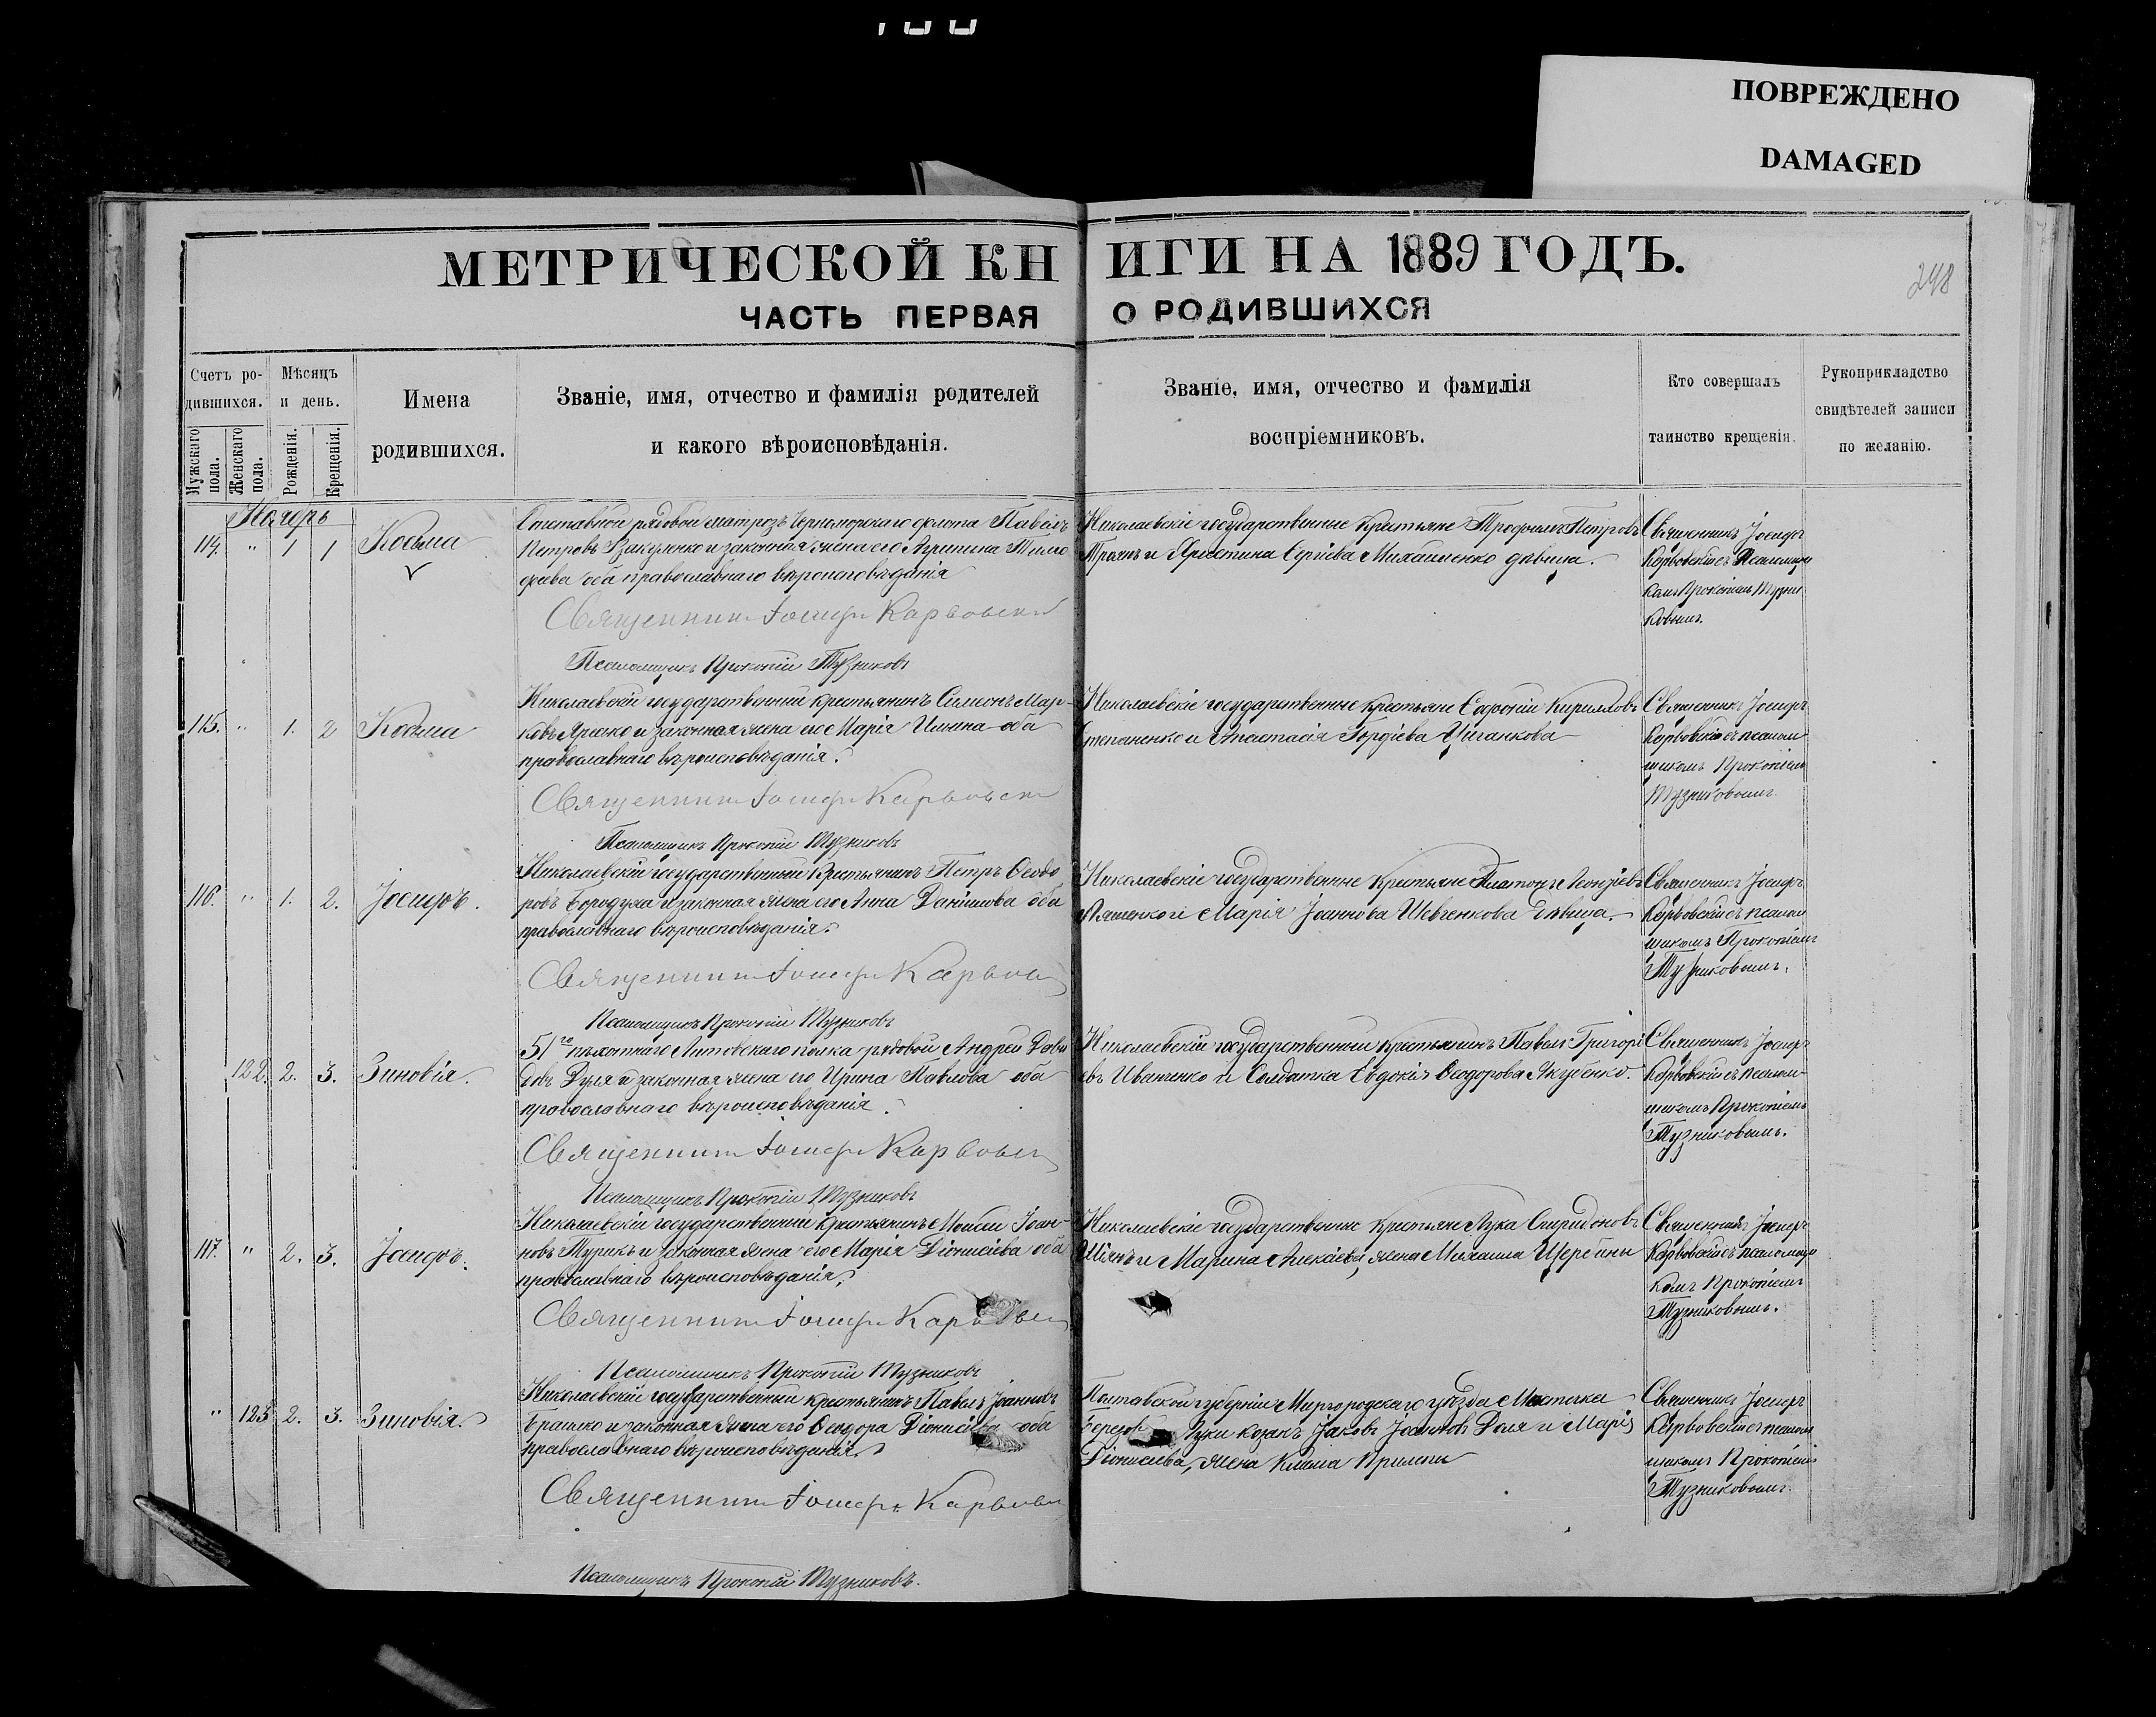 ПОВРЕЖДЕНО
DAMAGED
МЕТРИЧЕСКОЙ КНИГИ НА 1889 ГОДЪ.
248
ЧАСТЬ ПЕРВАЯ О РОДИВШИХСЯ
Счетъ ро-
дившихся.
Мужскаго пола.
Женскаго пола.
Мѣсяцъ
и день.
Рожденія.
Крещенія.
Имена
родившихся.
Званіе, имя, отчество и фамилія родителей
и какого вѣроисповѣданія.
Званіе, имя, отчество и фамилія
воспріемниковъ.
Кто совершалъ
таинство крещенія.
Рукоприкладство
свидѣтелей записи
по желанію.
Ноябрь
114. " 1 1 Косьма
Отставной рядовой матрозъ Черноморскаго флота Павелъ
Петровъ и законная жена его Агрипина Тимо
феева оба православнаго вѣроисповѣданія
Священникъ Іосифъ Карвовскій
Псаломщикъ Прокопій Тузниковъ
Николаевскіе государственные крестьяне Трофимъ Петровъ
Троянъ и Христина Сергіева Михайленко дѣвица.
Священникъ Іосифъ
Карвовскій съ псаломщи
комъ Прокопіемъ Тузни
ковымъ.
115. " 1. 2 Косьма
Николаевскій государственный крестьянинъ Симеонъ Мар-
ковъ Яреско и законная жена его Марія Ильина оба
православнаго вѣроисповѣданія.
Священникъ Іосифъ Карвовскій
Псаломщикъ Прокопій Тузниковъ
Николаевскіе государственные крестьяне Софроній Кирилловъ
Степаненко и Анастасія Гордіева Циганкова
Священникъ Іосифъ
Карвовскій съ псалом
щикомъ Прокопіемъ
Тузниковымъ.
116. " 1. 2. Іосифъ.
Николаевскій государственный крестьянинъ Петръ Ѳеодо
ровъ Бородуха и законная жена его Анна Даніилова оба
православнаго вѣроисповѣданія.
Священникъ Іосифъ Карвов
Псаломщикъ Прокопій Тузниковъ
Николаевскіе государственные крестьяне Платонъ Леонтіевъ
Ляшенко и Марія Іоаннова Шевченкова дѣвица.
Священникъ Іосифъ
Карвовскій съ псалом
щикомъ Прокопіемъ
Тузниковымъ.
122. 2. 3. Зиновія.
51го пѣхотнаго Литовскаго полка рядовой Андрей Дави
довъ Дуля и законная жена его Ирина Павлова оба
православнаго вѣроисповѣданія.
Священникъ Іосифъ Карвовскі
Псаломщикъ Прокопій Тузниковъ
Николаевскій государственный крестьянинъ Павелъ Григорі
евъ Иванченко и солдатка Евдокія Ѳеодорова Якубенко.
Священникъ Іосифъ
Карвовскій съ псалом-
щикомъ Прокопіемъ
Тузниковымъ.
117. " 2. 3. Іосифъ.
Николаевскій государственный крестьянинъ Моисей Іоан-
новъ Турикъ и законная жена его Марія Діонисіева оба
православнаго вѣроисповѣданія.
Священникъ Іосифъ Карвовс
Псаломщикъ Прокопій Тузниковъ
Николаевскіе государственные крестьяне Лука Спиридоновъ
Шіянъ и Марина Алексіева, жена Михаила Щербины
Священникъ Іосифъ
Карвовскій съ псаломщи
комъ Прокопіемъ
Тузниковымъ.
" 123 2. 3. Зиновія.
Николаевскій государственный крестьянинъ Павелъ Іоанновъ
Брашко и законная жена его Ѳеодора Діонисіева оба
православнаго вѣроисповѣданія
Священникъ Іосифъ Карвовскі
Псаломщикъ Прокопій Тузниковъ.
Полтавской губерніи Миргородскаго уѣзда Мѣстечка
Березов Луки козакъ Іаковъ Іоанновъ Доля и Марія
Діонисіева, жена Климa Прилепы
Священникъ Іосифъ
Карвовскій съ псалом
щикомъ Прокопіемъ
Тузниковымъ.